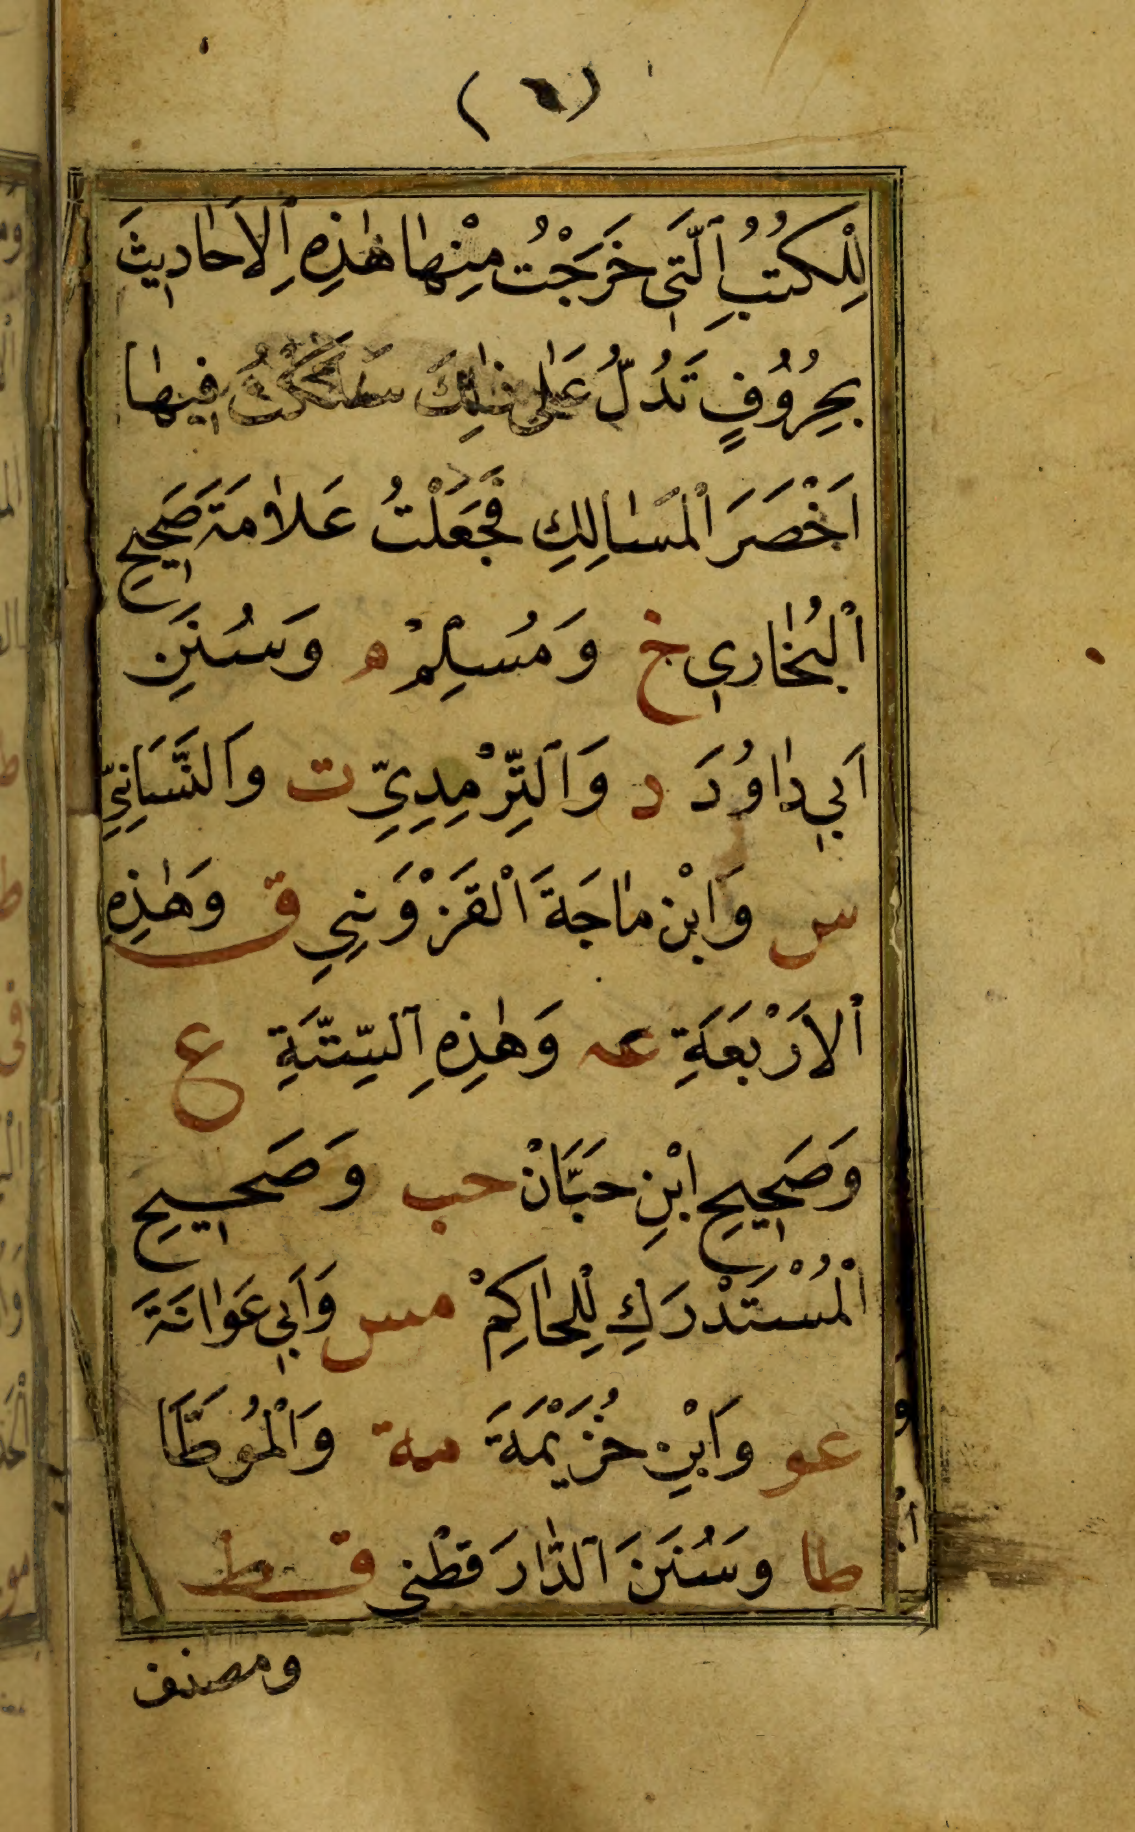 (٦)
لِلْكُتُبِ ٱلَّتِى خَرَجْتُ مِنْهٰا هٰذِهِ ٱلاَحٰادِيثَ
بِحُرُوُفٍ تَدُلُّ عَلٰى ذٰلِكَ سَلَكْتُ فِيهٰا
اَخْصَرَ الْمَسٰالِكِ فَجَعَلْتُ عَلاٰمَةَ صَحِيحِ
الْبُخٰارِي خ وَمُسْلِمْ م وَسُنَنِ
اَبِي دٰاوُدَ د وَالتِّرْمِدِيِّ ت وَالنَّسَانِيِّ
س وَابْن مٰاجَةَ الْقَزْوَنِي ق وَهٰذِهِ
الْاَرْبَعَةِ عه وَهٰذِهِ ٱلسِّتَّةِ ع
وَصَحِيحِ ابْنِ حَبَّانْ حب وَصَحِيحِ
الْمُسْتَدْرَكِ لِلْحٰاكِمْ مس وَاَبِي عَوٰانَةَ
عو وَابْنِ خُزَيْمَةَ مة وَالْمُوَطَّا
طا وَسُنَنَ ٱلدّٰارَ قطْنى قط
ومصنف